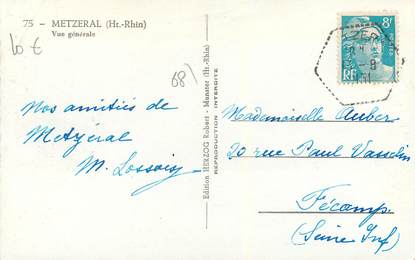 75 — METZERAL (Ht.-Rhin)
Vue générale
10 €
68)
Nos amitiés de
Metzéral
M.
Edition HERZOG Robert - Munster (Ht-Rhin)
REPRODUCTION INTERDITE
8F
POSTES
RF
51
Mademoiselle Auber
20 rue Paul Vasselin
Fécamp.
(Seine Inf)